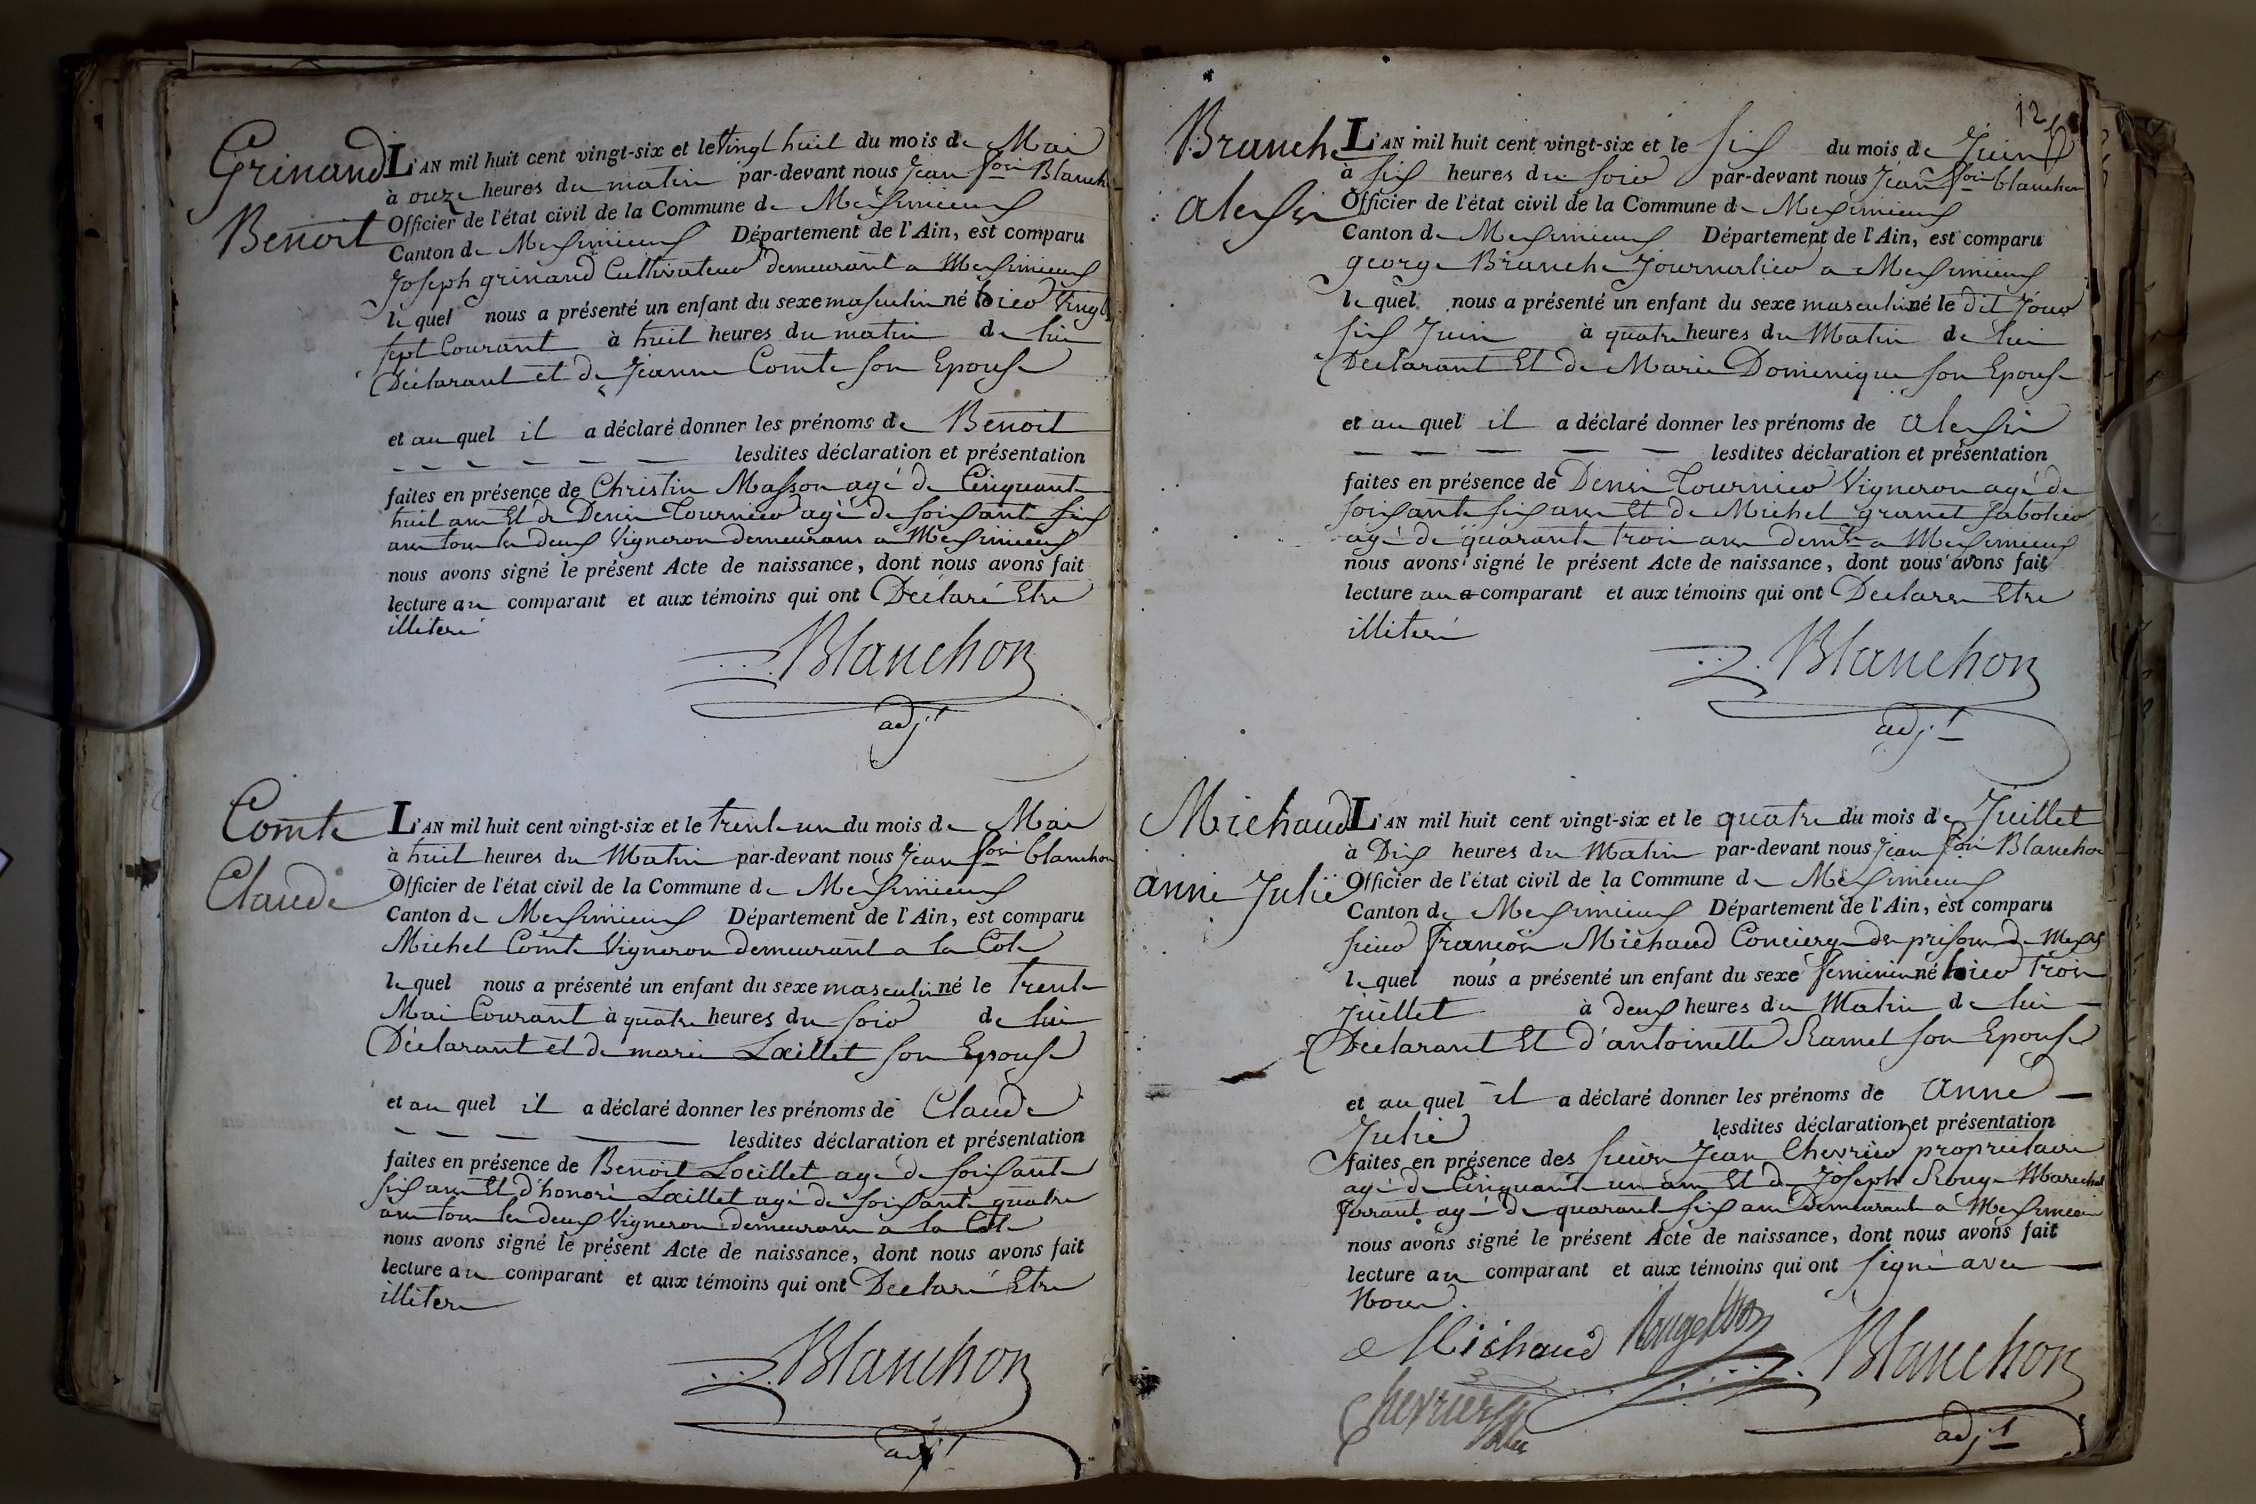 Grinand
Benoit
L'AN mil huit cent vingt-six et le vingt huit du mois de Mai
à onze heures du matin par-devant nous Jean foi Blanchon
Officier de l'état civil de la Commune de Meximieux
Canton de Meximieux Département de l'Ain, est comparu
Joseph grinand Cultivateur demeurant a Meximieux
le quel nous a présenté un enfant du sexe masculin né hier vingt
sept Courant à huit heures du matin de lui
Déclarant et de Jeanne Comte son Epouse
et au quel il a déclaré donner les prénoms de Benoit
lesdites déclaration et présentation
faites en présence de Christin Masson agé de Cinquante
huit ans Et de Denis Tournier agé de soixante six
ans tous les deux Vignerons demeurans a Meximieux
nous avons signé le présent Acte de naissance, dont nous avons fait
lecture au comparant et aux témoins qui ont Déclaré Etre
illiteré
Blanchon
adjt
Comte
Claude
L'AN mil huit cent vingt-six et le trente un du mois de Mai
à huit heures du Matin par-devant nous Jean foi blanchon
Officier de l'état civil de la Commune de Meximieux
Canton de Meximieux Département de l'Ain, est comparu
Michel Comte Vigneron demeurant a la Cote
le quel nous a présenté un enfant du sexe masculin né le trente
Mai Courant à quatre heures du soir de lui
Déclarant et de marie Lœillet son Epouse
et au quel il a déclaré donner les prénoms de Claude
lesdites déclaration et présentation
faites en présence de Benoit Lœillet agé de soixante
six ans Et d'honoré Lœillet agé de soixante quatre
ans tous les deux Vignerons demeurans a la Cote
nous avons signé le présent Acte de naissance, dont nous avons fait
lecture au comparant et aux témoins qui ont Declaré Etre
illiteré
Blanchon
adjt
12
Branche
alexis
L'AN mil huit cent vingt-six et le six du mois de Juin
à six heures du soir par-devant nous Jean foi blanchon
Officier de l'état civil de la Commune de Meximieux
Canton de Meximieux Département de l'Ain, est comparu
george Branche Journalier a Meximieux
le quel nous a présenté un enfant du sexe masculin né le dit Jour
six Juin à quatre heures du Matin de lui
Déclarant Et de Marie Dominique son Epouse
et au quel il a déclaré donner les prénoms de alexis
lesdites déclaration et présentation
faites en présence de Denis Tournier Vigneron agé de
soixante six ans Et de Michel granet sabotier
agé de quarante trois ans demt a Meximieux
nous avons signé le présent Acte de naissance, dont nous avons fait
lecture au comparant et aux témoins qui ont Declarés Etre
illiteré
Blanchon
adjt
Michaud
anne Julie
L'AN mil huit cent vingt-six et le quatre du mois de Juillet
à Dix heures du Matin par-devant nous Jean foi Blanchon
Officier de l'état civil de la Commune de Meximieux
Canton de Meximieux Département de l'Ain, est comparu
sieur françois Michaud Concierge des prisons de
le quel nous a présenté un enfant du sexe feminin né hier trois
Juillet à deux heures du Matin de lui
Déclarant Et d'antoinette Ramel son Epouse
et au quel il a déclaré donner les prénoms de anne
Julie lesdites déclaration et présentation
faites en présence des sieurs Jean Chevrier propriétaire
agé de Cinquante un ans Et de Joseph Rouge Marechal
ferrant agé de quarante six ans Demeurant a Meximieux
nous avons signé le présent Acte de naissance, dont nous avons fait
lecture au comparant et aux témoins qui ont signé avec
Nous.
Michaud Blanchon
Chevrier
adjt